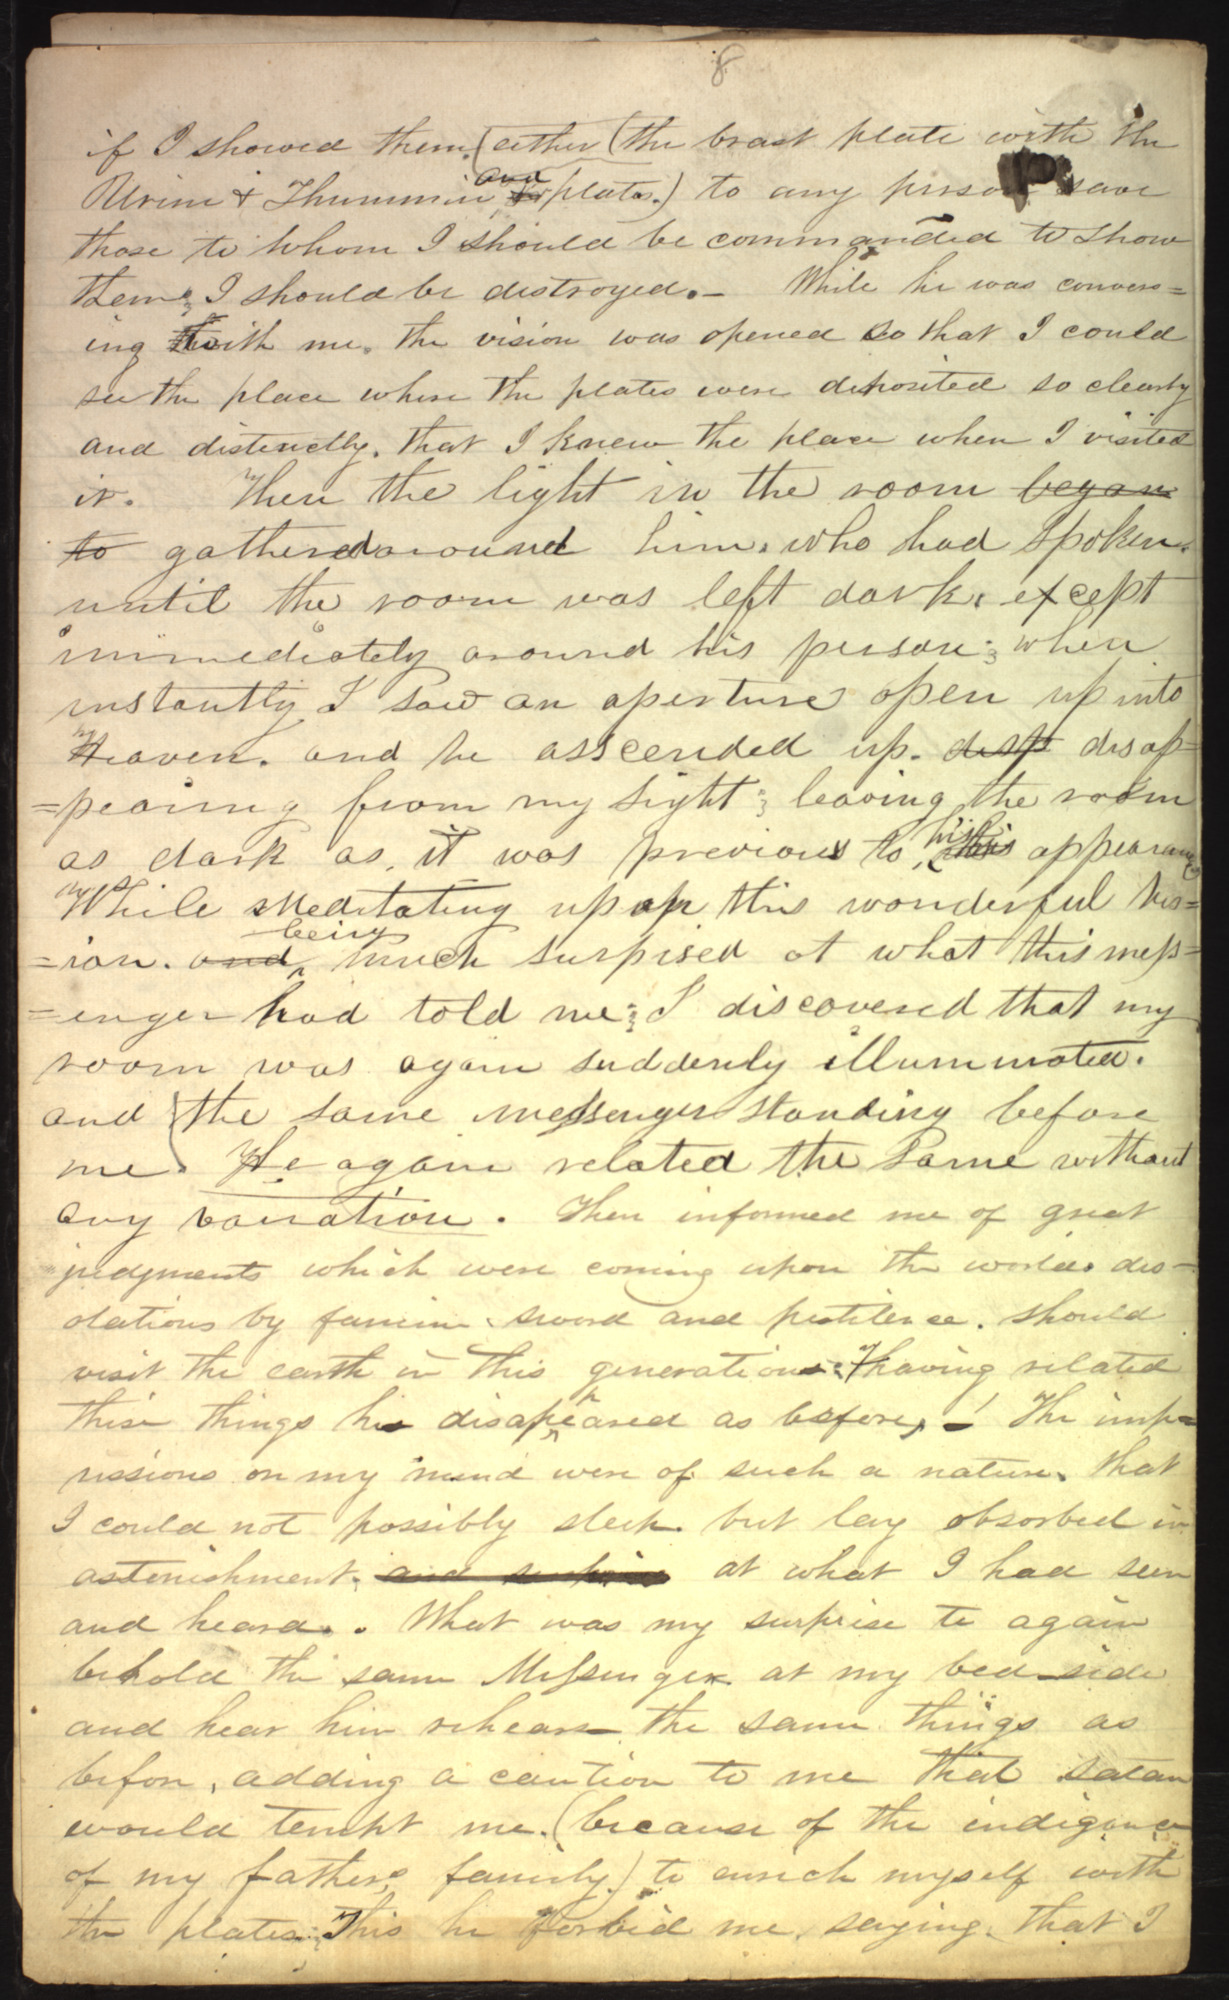 8
if I showed them, (either (the brast plate with the
Urim & Thummim and plates.) to any person save
those to whom I should be commanded to show
them; I should be destroyed.— While he was convers=
ing with me, the vision was opened so that I could
see the place where the plates were deposited so clearly
and distinctly, that I knew the place when I visited
it. Then the light in the room began
to gathered around him, who had spoken,
until the room was left dark, except
immediately around his person; when
instantly I saw an aperture open up into
Heaven. and he asscended up. disp disap=
=pearing from my sight; leaving the room
as dark as it was previous to, his this appearance
While Meditating upon this wonderful vis=
=ion. and being much surprised at what this mess=
=enger had told me; I discovered that my
room was again suddenly illuminated.
and (the same messenger standing before
me. He again related the same without
any variation. Then informed me of great
judgments which were coming upon the world. des-
olations by famine, sword and pestilence. should
visit the earth in this generation. Having related
these things he disappeared as before,— The imp=
ressions on my mind were of such a nature, that
I could not possibly sleep. but lay absorbed in
astonishment, and surprise at what I had seen
and heard. . What was my surprise to again
behold the same Messenger at my bed-side
and hear him rehearse the same things as
before, adding a caution to me that satan
would tempt me. (because of the indigance
of my father's family.) to enrich myself with
the plates; This he forbid me, saying, that I